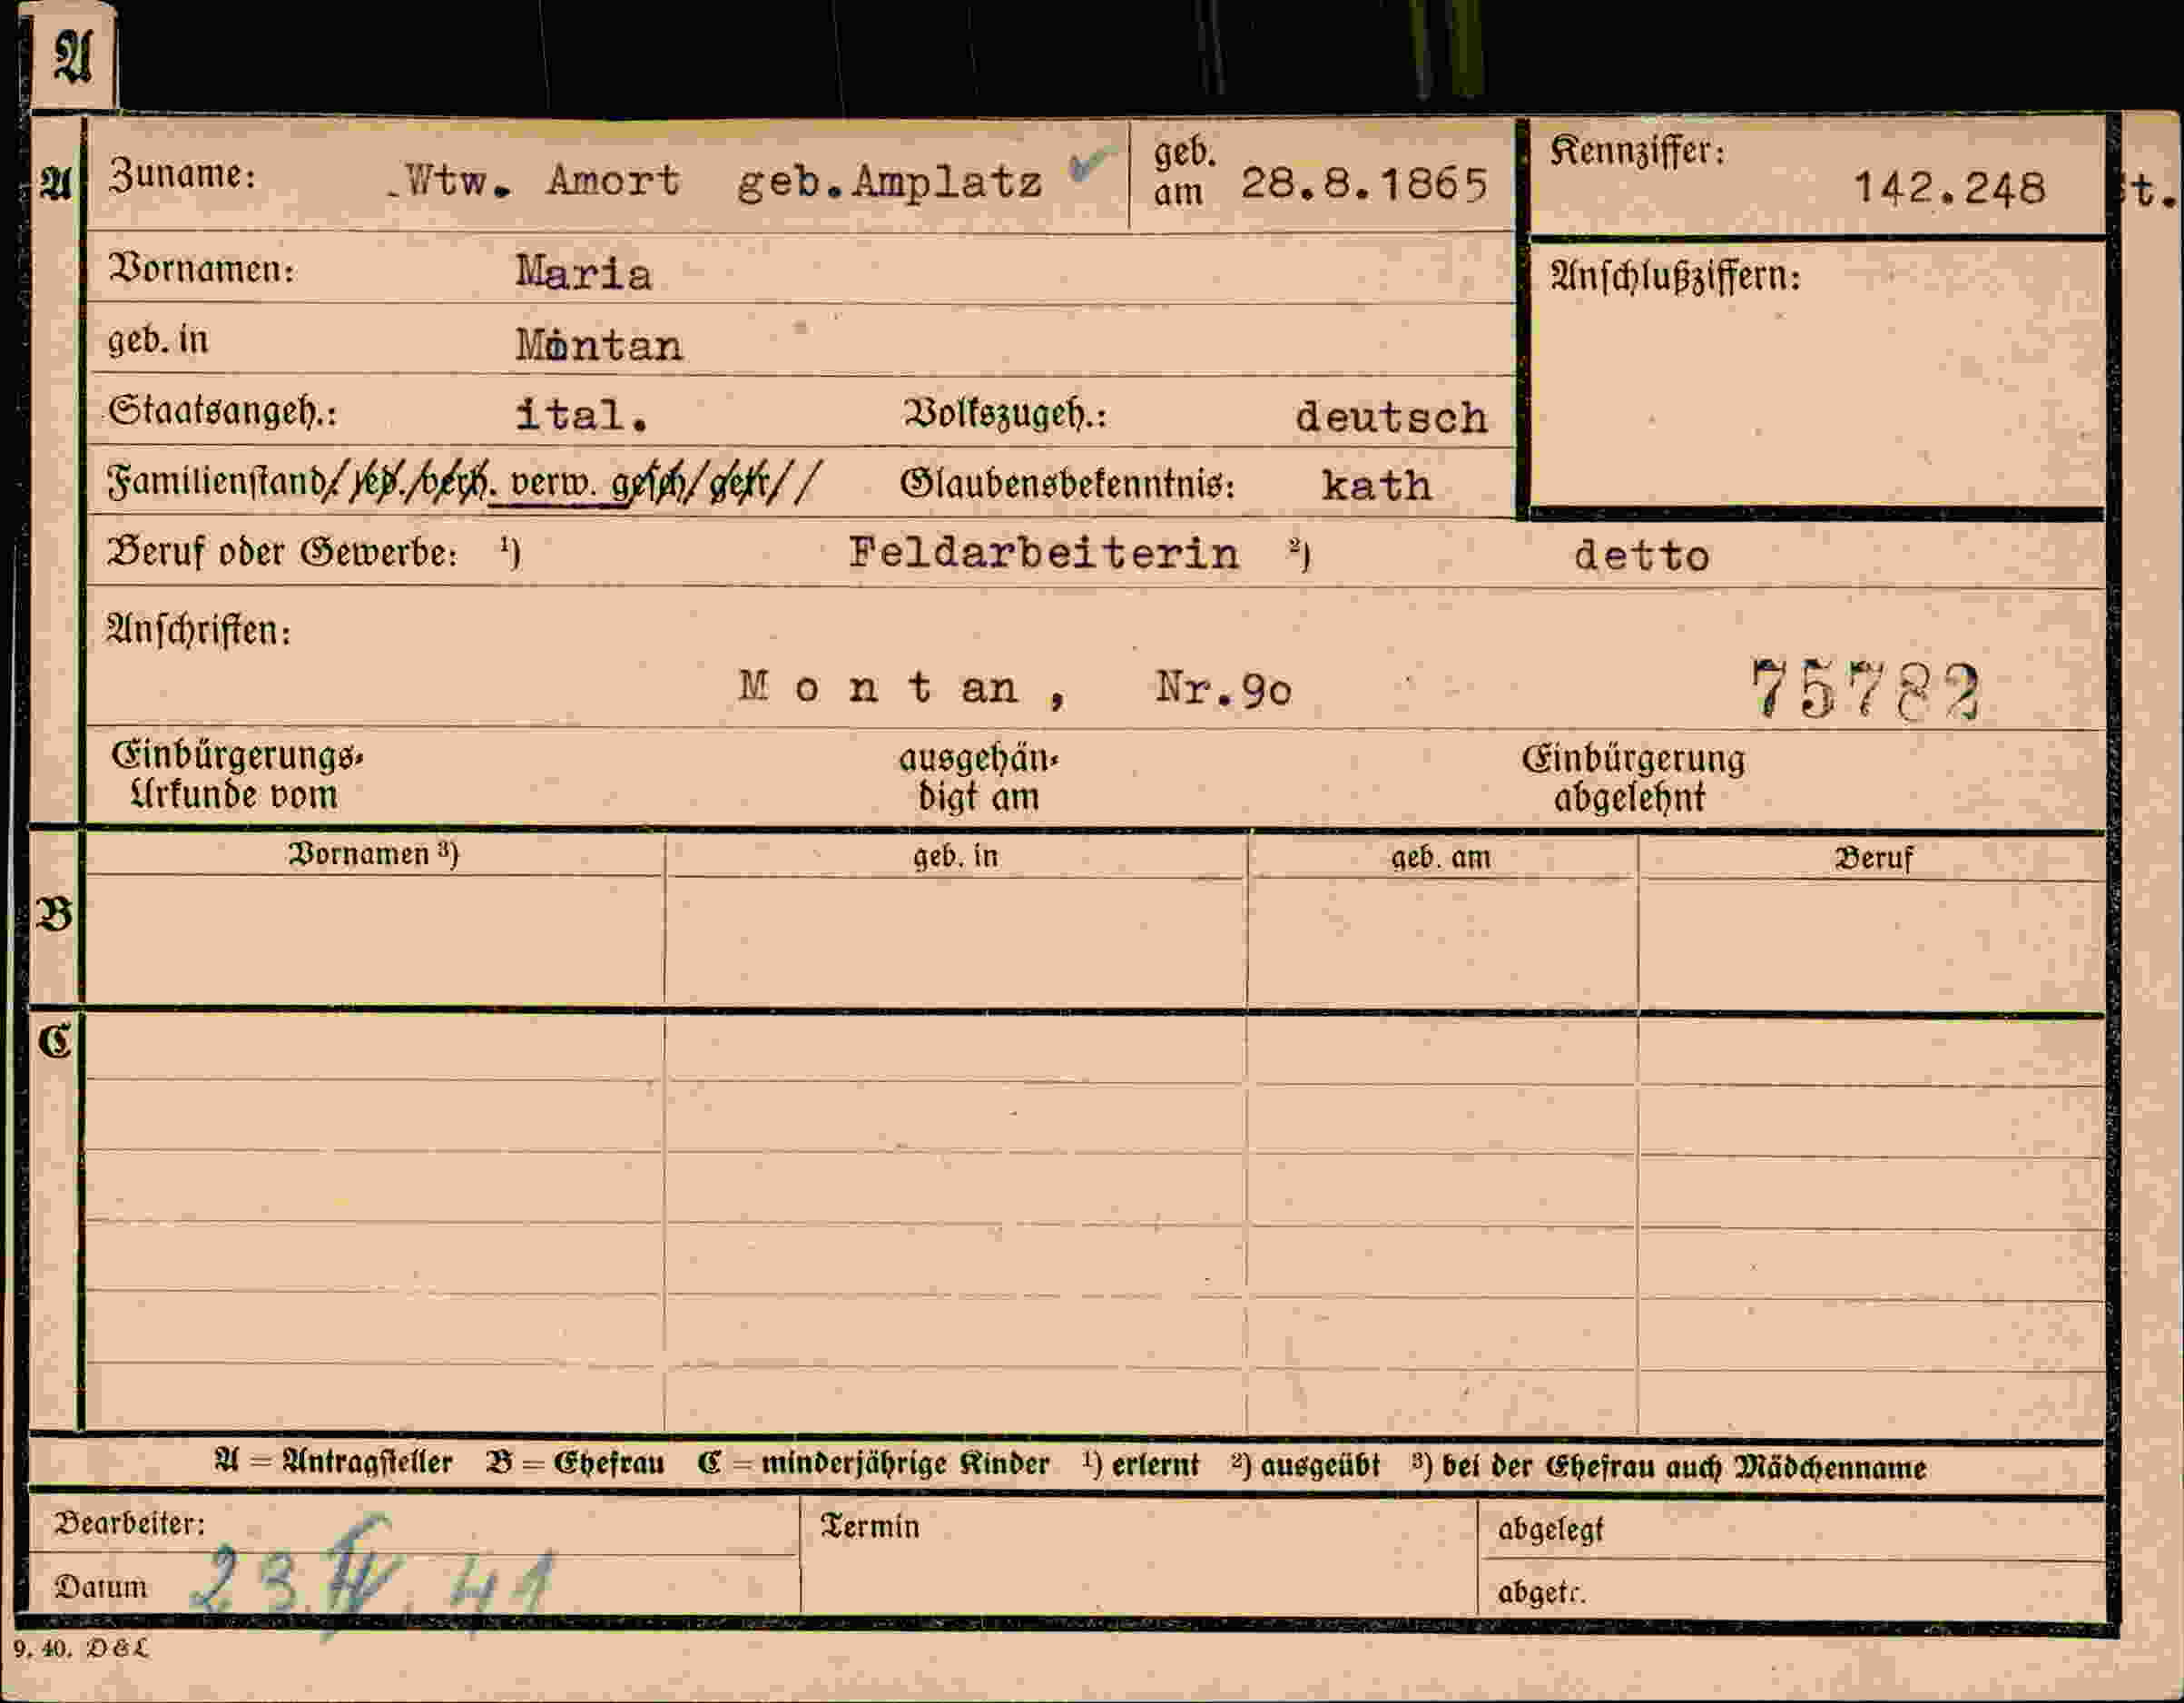 A
A
Zuname: Wtw. Amort geb.Amplatz
geb. am 28.8.1865
Kennziffer: 142.248
t.
Vornamen: Maria
Anschlußziffern:
geb. in Montan
Staatsangeh.: ital. Volkszugeh.: deutsch
Familienstand: led. verh. verw. gesch. getr. Glaubensbekenntnis: kath
Beruf oder Gewerbe: ¹) Feldarbeiterin ²) detto
Anschriften:
Montan, Nr.90 75782
Einbürgerungs-
Urkunde vom
ausgehän-
digt am
Einbürgerung
abgelehnt
Vornamen ³) geb. in geb. am Beruf
B
C
A = Antragsteller B = Ehefrau C = minderjährige Kinder ¹) erlernt ²) ausgeübt ³) bei der Ehefrau auch Mädchenname
Bearbeiter: Termin abgelegt
Datum 23. IV. 41 abgetr.
9. 40. D & L